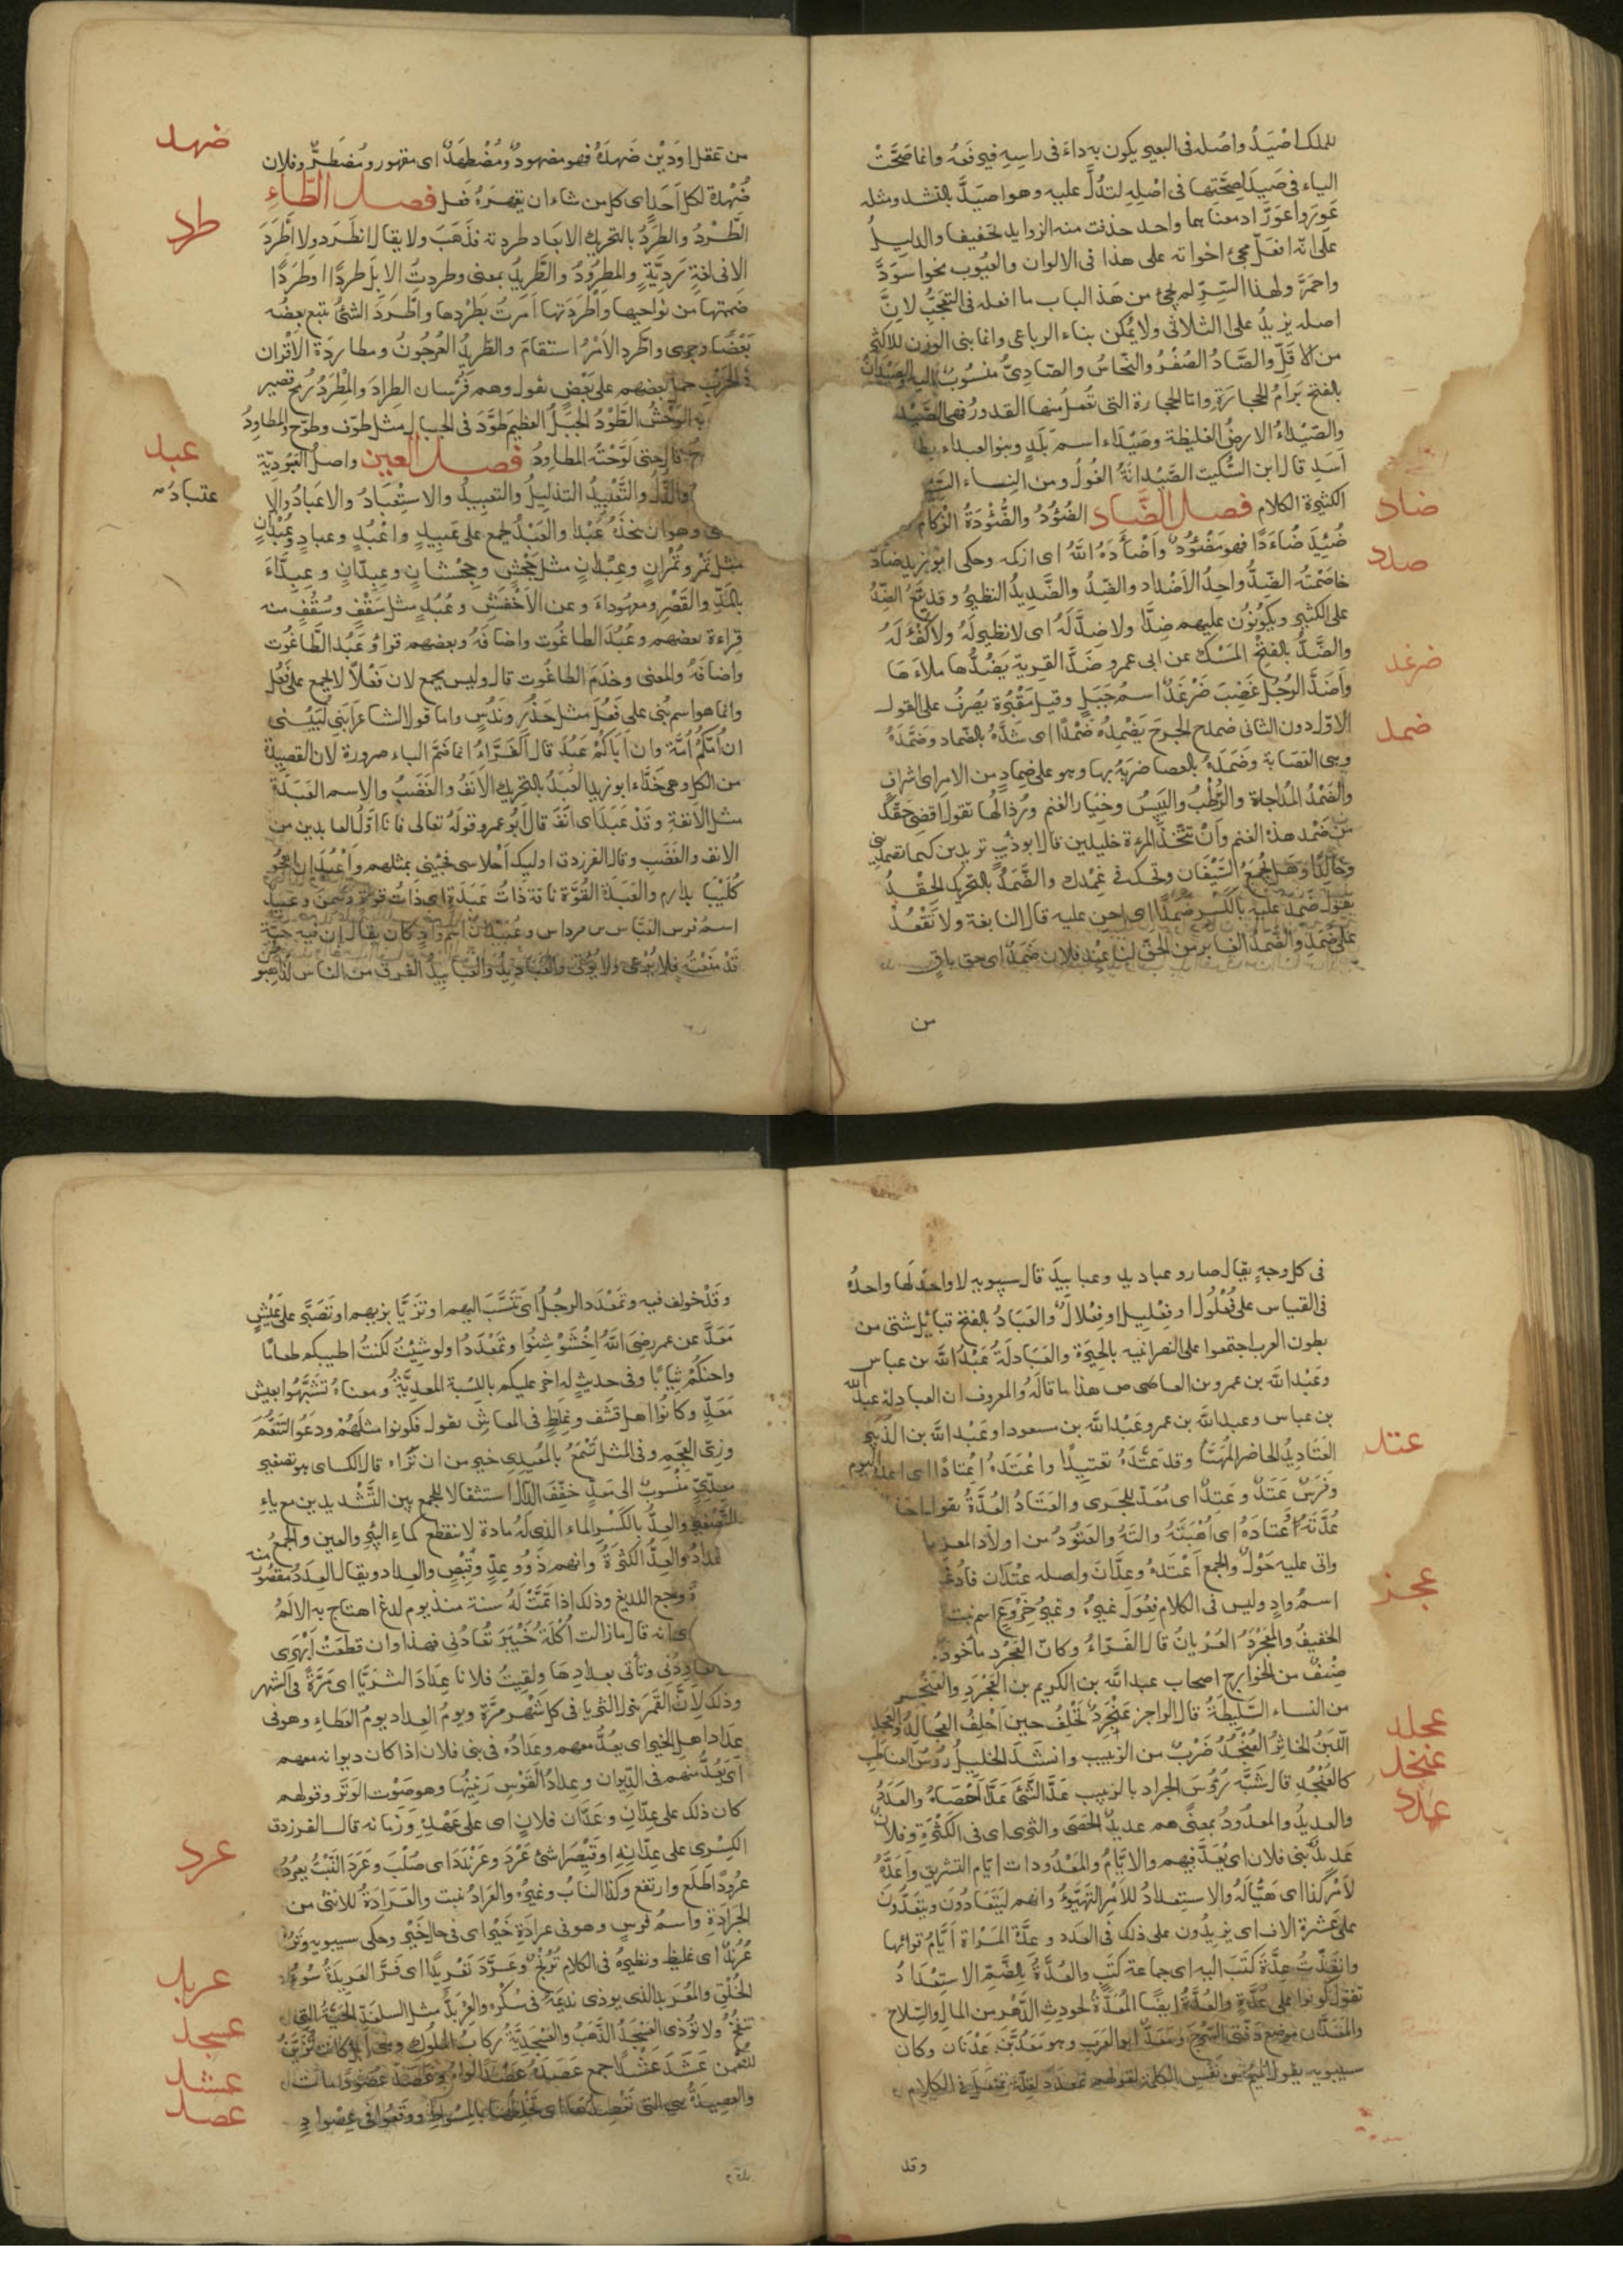 للملك اصْيَدُ واصُله فى البعير يكون به داءَ فى راسِهِ فيرفعُه وانما صَحَّتْ
الياء فى صَيِدَ لصِحَّتِها فى اصْلِهِ لتدُلَّ عليه وهو اصيَدَّ بالتشديد ومثله
عَوِرَ واعوَرَّ اذ معناهما واحد حذفت منه الزوايد تخفيفا والدليلُ
على انّه افعَلّ مجئُ اخواته على هذا فى الالوان والعُيُوب نحو اسْوَدَّ
واحمَرَّ ولهذا السِّرّ لم يجئ من هَذا الباب ما افعله فى التعَجُّبِ لانَّ
اصله يزيدُ على الثلاثى ولا يُمكن بناء الرباعى وانما بنى الوزن للاكثر
من الاقَلّ والصَّادُ الصُفْرُ والنحّاسُ والصّادِىُّ منسُوبٌ اليه والصَيْدَانُ
بالفتح بَرامُ الحجارَةِ واما الحجارة التى تُعمل منها القدور فهى الصَّيْد
والصّيْدَاءُ الارضُ الغليظة وصَيْدَاء اسم بَلَدٍ وبنو الصيداء بط
اَسَدٍ قال ابن السُّكيت الصَّيْدانَةُ الغُولُ ومن النِساء السَّي
الكثيرة الكلام فصل الضَّاد الضُؤْدُ والضُّؤْدَةُ الزُكَامُ
ضاد
ضُئِدَ ضُاءَدًا فهو مَضْئُوْدٌ واَضْأَدَهُ اللَّهُ اى ازكمه وحكى ابو زيد ضادّ
ضدد
خاصَمْتُه الضِدُّ واحِدُ الاَضْداد والضِدُ والضَّدِيدُ النظيرُ وقد يقَعُ الضِدُّ
على الكثير ويكونُوْن عليهم ضِدًّا ولا ضِدَّ لَهُ اى لا نظير لَهُ ولا كُفْئَ لَهُ
والضَّدُّ بالفتحْ المَسْك عن ابى عمرو ضَدَّ القِربة يَضُدُّها ملاءَها
ضرغد
واَضَدَّ الرجُل غَضِبَ ضَرْغَدٌ اسمُ جَبَلٍ وقيل مَقْبُرة يُصرَفُ على القول
الاوّل دون الثانى ضمد الجُرحَ يَضْمِدُهُ ضَمْدًا اى شدَّهُ بالضماد وضمَّدَهُ
ضمد
وهى العَصَابة وضَمَدَهُ بالعصا ضرَبَهُ بها وهو على ضِمادٍ من الامر اى شراف
والضَمْدُ المُدَاجاة والرُطْبُ واليَبِيسُ وخِيَار الغنم ورُذالُها تقول اقضى حَقَّكَ
من ضَمْد هذه الغنم وانْ تتخذ المرءة خليلين قال ابو ذؤيب تريدين كيما تضمدينى
وخالِدًا وهل يُجمَعُ السَيْفَانِ ويحك فى غِمْدِك والضَّمَدُ بالتحرك الحِقْدُ
يقول ضَمِدَ عليه بالكَسْر ضَمَدًا اى احِن عليه قال النابغة ولا تَقْعُدْ
على ضَمَدِ والضَّمَدُ الغابر من الحَقّ لنا عِنْد فلانٍ ضَمَدٌ اى حق باقٍ
من
من عَقل او دَيْن ضَهدَهُ فهو مضهودٌ ومُضْطهَدٌ اى مقهور ومُضطرٌّ وفلان
ضهد
ضُهْدة لكل اَحَدٍ اى كل من شاء ان يقهرَهُ فعل فصل الطَّاءِ
طرد
الطَّرْدُ والطَرَدُ بالتحريك الابعاد طردته فذهَبَ ولا يقال انطرَد ولا اطَّرَدَ
الا فى لغةٍ رَدِيَّةٍ والمطرُوْدُ والطَّرِيدُ بمعنى وطردتُ الابِلَ طردًا اوطَرَدًا
ضممتها من نواحيها واَطْردَتها اَمَرتُ بطردِها واطَّرَدَ الشئُ تَبِعَ بعضُه
بَعْضًا وجرى واطّردِ الاَمْرُ استقامَ والطَرِيدُ العُرْجُونُ ومطارَدَة الاَقرَان
فى الحَرْبِ حمل بعضهم على بَعْضٍ يقول وهم فُرْسان الطِرادَ والمِطْرَدُ رمح قصير
به الوَحْش الطَّوْدُ الجَبَل العظيم طوَّدَ فى الجبال مثل طوّف وطوّح والمطاوِدُ
قال حتى لَوَّحَتْهُ المطاوِدُ فصل العين واصل العُبُودِيّة
عبد
والذلّ والتَّعْبِيْدُ التذليلُ والتعبيدُ والاستِعْبَادُ والاعبَادُ والا
عتبادُ
ى وهو ان تخذَهُ عَبْدا والعَبْدُ يجمع على عَبِيدٍ واعْبُدٍ وعبادٍ وعُبْدَانٍ
مثل تمْر وتُمْرانٍ وعِبْدَانٍ مثل جَحْشٍ وجِحْشَانٍ وعِبِدّانٍ وعِبِدَّاءَ
بالمَدِّ والقَصْر ومعبُوداءَ وعن الاَخْفَشِ وعُبُدٍ مثل سَقْفٍ وسُقُفٍ منه
قِراءة بعضهم وعُبُدَ الطاغُوت واضافَهُ وبعضهم قراؤ عَبُدَ الطَّاغُوت
واضافهُ والمعنى وخَدَمَ الطاغُوت قال وليس يجمع لان فَعْلاً لا يجمع على فَعُل
وانما هو اسم بُنى على فَعُل مثل حَذُر ونَدُسٍ واما قول الشاعر اَبنى لُبَيْنى
ان اُمّكمُ اَمَة وان اَباكمْ عَبُدُ قال الفَرَّاءُ انما ضَمَّ الباء ضرورة لان القصيدة
من الكامل وهى حَذَّاءُ ابو زيد العَبَدُ بالتحريك الاَنَفُ والغَضَبُ والاسم العَبَدَة
مثل الاَنفةِ وقدْ عَبدَ اى انَفَ قال ابُو عمرو قولَهُ تعالى فَانَا اوّلُ العابدين من
الانف والغَضَبِ وقال الفرزدق اوليك اَحْلاسى فجِئنى بمثلهم واَعْبَدُ ان اهجُوْ
كُلَيْبًا بدارم والعَبَدَة القُوَّة نا قة ذاتُ عَبَدَةٍ اى ذاتُ قوةٍ وسِمَن وعُبَيْد
اسمُ فرس العَبَّاس بن مرداس وعُبَيْدَانُ اسمُ وادٍ كان يقال ان فيه حيّة
قدْ منَعتْهُ فلا يُرْعى ولا يُؤتى والعَبَادِيدُ والعَبَابِيدُ الفرق من الناس الذاهبو
فى كل وجهٍ يقال صارو عباديد وعبابيدَ قال سيبويه لا واحدَ لَها واحدُهُ
فى القياس على فُعْلُول او فِعْلِيل او فِعْلالٌ والعَبَادُ بالفتح قبائل شتى من
بطون العرب اجتمعوا على النصرانيه بالحِيْرَة والعَبَادلَةُ عَبْدُ اللَّه بن عباس
وعَبْدُ اللَّه بن عمرو بن العاصى ص هذا ما قالَهُ والمعروف ان العبادلة عبد اللَّه
بن عباس وعبد اللَّه بن عمرو عَبْدُ اللَّه بن مسعود اوعَبْدُ اللَّه بن الذُّبير
عتد
العَتَادِيدُ الحاضر المُهيّأُ وقد عَتَّدَهُ تعتِيدًا واعْتَدَهُ اِعْتِادًا اى اعدّهُ ليوم
وفَرَسٌ عَتَدٌ وعَتِدٌ اى مُعَدٌّ للجرى والعَتَادُ العُدَّةُ يقول اخذ
عُدَّتَهُ وعتادَهُ اى اُهْبَتَهُ والتَهُ والعَتُوْدُ من اولاد المعز ما
واتى عليه حَوْلٌ والجمع اَعْتدَهٌ وعِدَّانٌ واصله عِتْدان فادغم
عجز
اسمُ وادٍ وليس فى الكلام فِعْوَل غيرُهُ وغيرُ خِرْوَعٍ اسم نبت
الخفيفُ والعَجْرَدُ العُرْيانُ قال الفَرّاءُ وكانّ العَجْرَد ماْخوذٌ
صِنْفٌ من الخوارج اصحاب عبد اللَّه بن الكريم بن العَجْرَدِ والعَنْجَرِ
من النساء السَّلِيطَةُ قال الراجز عَنْجَرِدٌ تَحْلِفُ حين اَحْلِفُ العُجالِدُ والعجلد
عجلد
اللّبَنُ الخاثِرُ العُنْجُدُ ضَرْبٌ من الزبيب وانشَدَ الخليلُ رؤسُ العناظب
عنجد
كالعُنْجُدِ قال شَبَّه رُؤُسَ الجراد بالزبيب عَدَّ الشَّئَ عَدًّا اَحْصَاهُ والعَدَدُ
عدد
والعديدُ والمعدُودُ بمعنًى هم عديدُ الحَصَى والثرى اى فى الكَثْرَةِ وفلانٌ
عَديدُ بنى فلان اى يُعَدّ فيهم والايَّامُ والمعْدُودات ايّام التشريق واعَدَّهُ
لاَمْرِ كذا اى هَيَّأَلَهُ والاستِعدادُ للاَمْرِ التَهَيَّؤُ وانهم ليتعادُّونَ ويتعَدَّدُونَ
على عَشَرة الاف اى يزيدُون على ذلك فى العَدَد وعِدَّةُ المرْاة اَيَّامُ قرائها
وانْفِذْتُ عِدَّةَ كتَبَ اليه اى جماعة كتَبٍ والعُدَّةُ بالضَّمِّ الاستِعْدَادُ
تقول كونوا على عُدَّةٍ والعُدَّةُ ايضًا المُعَدَّةُ لحودثِ الدَّهْر من المال والسِّلاح
والمَعَدَّانِ موضِع دَفّتى السَّرْج ومَعَدٌّ ابو العَرَب وهو مَعَدُّ بْن عَدْنان وكان
سيبويه يقول المِيْمُ من نفْسِ الكلمة لقولهم تمعدد لقلة تمَفْعَلَ فى الكلام
وقد
وقَدْ خولف فيه وتمَعْدَدَ الرجُلُ اى تَنَسَّبَ اليهم او تزَيَّا بزيهم او تَصَبَّر على عَيْشِ
مَعَدٍّ عن عمر رضِىَ اللَّهُ اِخْشَوْشِنُوا وتمعْدَدُوا ولو شِيْتُ لكنتُ اطيبكم طعامًا
واحسنكُمْ ثيابًا وفى حديثٍ له اخر عليكم باللبسة المعدِيَّةُ ومعناهُ تَشَبَّهوا بعيش
مَعَدٍّ وكانُوْا اهل قَشَف وغِلظٍ فى المعاشِ يقول فكونوا مثلَهُمْ ودَعُوا التَنَعُّمَ
وزِىَّ العَجَمِ وفى المثل تَسْمَعُ بالمُعَيدِى خير من ان تَرَاه قال الكساى هو تصغير
معدِّىٍّ منْسُوبٌ الى مَعَدٍّ خفّفَ الدال استثقالا للجمع بين التَّشْدِيدَيْن مع ياءِ
التصْغير والعِدُّ بالكَسْر الماء الذى لَهُ مادة لا تنقطع كماءِ البئرِ والعين والجمعُ
عدادٌ والعِدُّ الكثرَةُ وانهم ذَوُوعِدٍّ وقِبْصٍ والعداد ويقال العِدَدُ مقصُوْر
منه
وجع اللديغ وذلك اذا تمَّتْ لَهُ سنة منذ يوم لدغ اهتاج به الاَلَمُ
ى انه قال مازالت اُكْلَةُ خَيْبَرَ تُعَادُنِى فهذا وان قطعَتْ اَبْهَرِى
عاوِدُنِى وتأتى بعدادِها ولقيتُ فلانا عِدَادَ الثرَيَّا اى مَرَّةً فى الشهر
وذلك لاَنَّ القَمر ينزل الثريا فى كل شَهْر مَرّة ويومُ العِداد يومُ العَطاءِ وهو فى
عدادِ اهل الخير اى يعدُّ معهم وعدادُهُ فى بنى فلان اذا كان ديوانه معهم
اى يُعَدُّ منهم فى الدِّيوان وعِدادُ القَوْسِ رَنِينُها وهو صَوْت الوَتَر وقولهم
كان ذلك على عِدَّانِ وعَدَّانِ فلانٍ اى على عَهْدِهِ وَزَمانه قال الفرزدق
الكِسْرى على عِدّانِهِ او قَيْصَرا شئ عَرْدَ وعَرَنْدَدَ اى صُلْبٌ وعَرَدَ النَّبْتُ يَعرُدُ
عرد
عرُودًا طَلَع وارتفع وكذا النابُ وغيرُه والعَرادُ نبت والعَرَادَةُ للانثى من
الجَرادَةِ واسمُ فرسٍ وهو فى عرادَةِ خَيرْ اى فى حال خَيْرٍ وحكى سيبويه وتَرُ
عُرُنْدٌ اى غليظ ونظيرُهُ فى الكلام تُرُنْجٌ وعَرَّدَ تَعْرِيدًا اى فَرَّ العَرْبَدةُ سُوْءُ
عربد
الخُلُقِ والمُعَرْبِدُ الذى يوذى نديمَهُ فى سُكْرِه والعِرْبَدُّ مثل السِلغَدِّ الحَيَّةُ التى
عسجد
تنفُخُ ولا تؤذى العَسْجَدُ الذَّهَبُ والعَسْجدِيَّةُ ركابُ المُلوك وهى ابل كانت تُزَيَّنُ
عشد
للنعمن عَشَدَ عَشْدًا جمع عَصَدَهُ عَصْدًا لواهُ وعَصَدَ عُصُودًا مات
عصد
والعصيدةُ هى التى تَعْصِدُها اى تَخْلِطُها بالمِسْوَاطِ ووَقَعُوا فى عِصْوادٍ